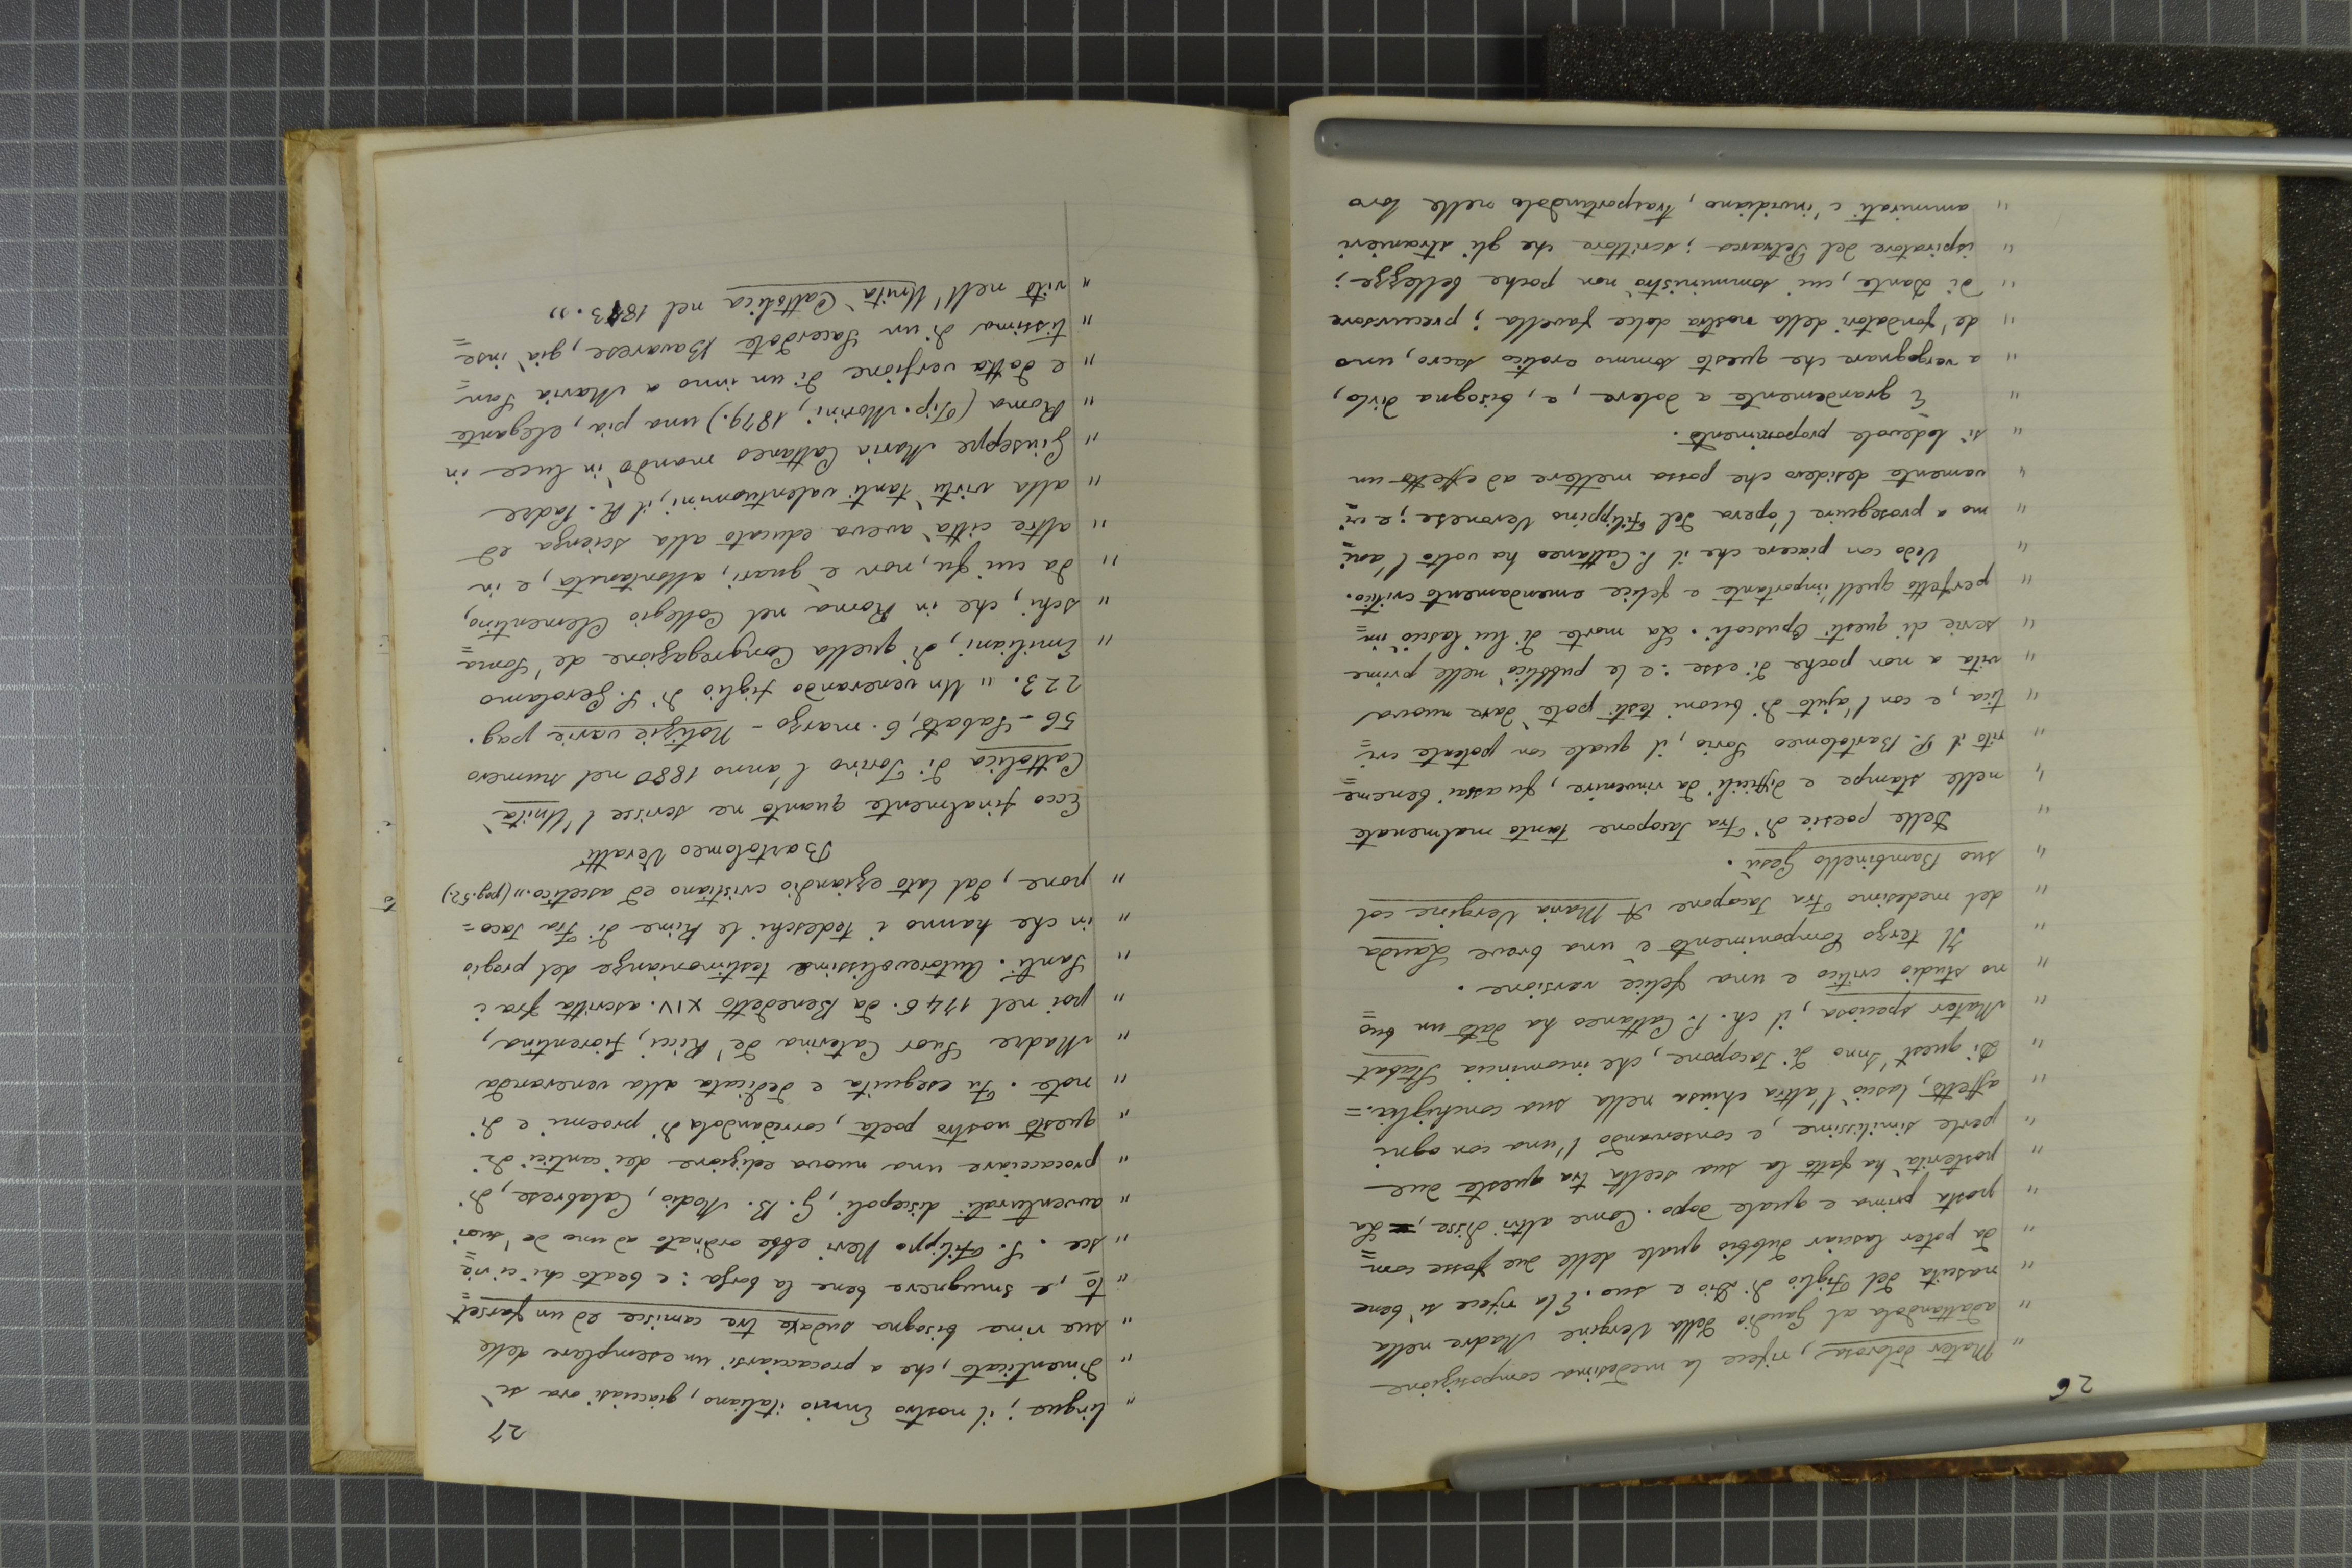 26
" Mater dolorosa, rifece la medesima composizione
" adattandola al Gaudio della Vergine Madre nella
" nascita del Figlio di Dio e suo. E la rifece sì bene
" da poter lasciar dubbio quale delle due fosse com=
" posta prima e quale dopo. Come altri disse, La
" posterità ha fatto la sua scelta tra queste due
" perle similissime, e conservando l'una con ogni
" affetto, lasciò l'altra chiusa nella sua conchiglia. =
" Di quest'Inno di Jacopone, che incomincia Stabat
" Mater speciosa, il ch. P. Cattaneo ha dato un buo=
" no studio critico e una felice versione.
" Il terzo Componimento è una breve Lauda
" del medesimo Fra Jacopone A Maria Vergine col
" suo Bambinello Gesù.
" Delle poesie di Fra Jacopone tanto malmenate
" nelle stampe e difficili da rinvenire, fu assai beneme=
" rito il P. Bartolomeo Sorio, il quale con potente cri=
" tica, e con l'ajuto di buoni testi potè dare nuova
" vita a non poche di esse: e le pubblicò nelle prime
" serie di questi Opuscoli. La morte di lui lasciò im=
" perfetto quell'importante e felice emendamento critico.
" Vedo con piacere che il P. Cattaneo ha volto l'ani=
" mo a proseguire l'opera del Filippino Veronese; e vi=
" vamente desidero che possa mettere ad effetto un
" sì lodevole proponimento.
" È grandemente a dolere, e, bisogna dirlo,
" a vergognare che questo sommo erotico sacro, uno
" de' fondatori della nostra dolce favella; precursore
" di Dante, cui somministrò non poche bellezze;
" ispiratore del Petrarca; scrittore che gli stranieri
" ammirati c'invidiano, trasportandolo nelle loro
27
" lingue; il nostro Ennio italiano, giacciasi ora sì
" dimenticato, che a procacciarsi un esemplare delle
" sue rime bisogna sudare tre camisce ed un farset=
" to, e smugnere bene la borsa: e beato chi ci rie=
" sce. S. Filippo Neri ebbe ordinato ad uno de' suoi
" avventurati discepoli, G. B. Modio, Calabrese, di
" procacciare una nuova edizione dei cantici di
" questo nostro poeta, corredandola di proemi e di
" note. Fu eseguita e dedicata alla veneranda
" Madre Suor Caterina de' Ricci, fiorentina,
" poi nel 1746. da Benedetto XIV. ascritta fra i
" Santi. Autorevolissime testimonianze del pregio
" in che hanno i tedeschi le Rime di Fra Jaco=
" pone, dal lato eziandio cristiano ed ascetico „ (pag. 52.)
Bartolomeo Veratti
Ecco finalmente quanto ne scrisse l'Unità
Cattolica di Torino l'anno 1880 nel numero
56 - Sabato, 6. marzo - Notizie varie pag.
223. „ Un venerando figlio di S. Gerolamo
" Emiliani, di quella Congregazione de' Soma=
" schi, che in Roma nel Collegio Clementino,
" da cui fu, non è guari, allontanata, e in
" altre città aveva educato alla scienza ed
" alla virtù tanti valentuomini, il R. Padre
" Giuseppe Maria Cattaneo mandò in luce in
" Roma (Tip. Morini, 1879.) una pia, elegante
" e dotta versione di un inno a Maria San=
" tissima di un Sacerdote Bavarese, già inse=
" rito nell'Unità Cattolica nel 1873. „